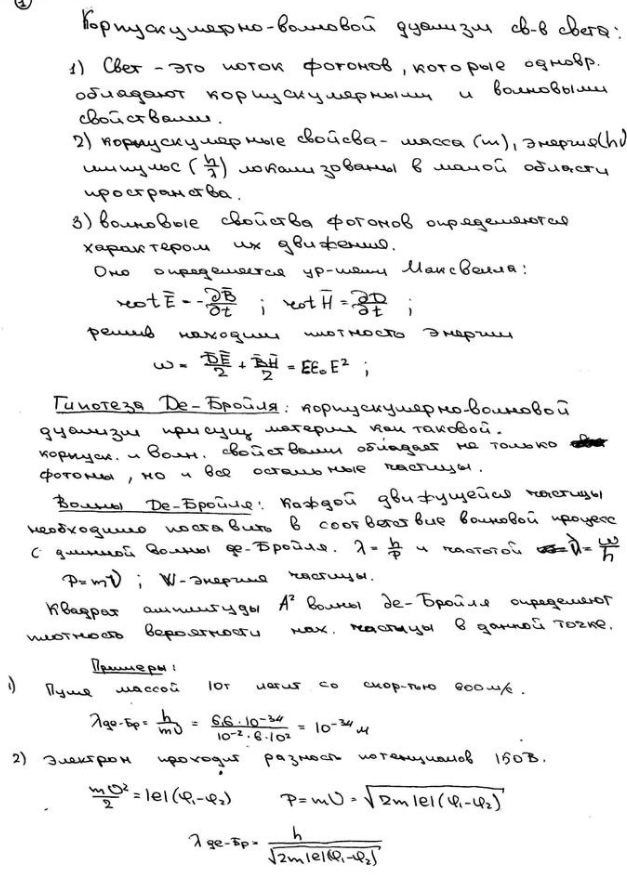 ①
Корпускулярно-волновой дуализм св-в света:
1) Свет - это поток фотонов, которые одновр.
обладают корпускулярными и волновыми
свойствами.
2) корпускулярные свойсва - масса (m), энергия (hν
импульс (h/λ) локализованы в малой области
пространства.
3) волновые свойства фотонов определяются
характером их движения.
Оно определяется ур-иями Максвелла:
rot E̅ = -∂B̅/∂t ; rot H̅ = ∂D̅/∂t ;
решив находим плотность энергии
ω = D̅E̅/2 + B̅H̅/2 = εε₀E² ;
Гипотеза Де-Бройля: корпускулярно-волновой
дуализм присущ материи как таковой.
корпуск. и волн. свойствами обладает не только
фотоны, но и все остальные частицы.
Волны Де-Бройля: Каждой движущейся частицы
необходимо поставить в соответствие волновой процесс
с длинной волны де-Бройля. λ = h/p и частотой ν = W/h
P = mV ; W - энергия частицы.
Квадрат амплитуды A² волны де-Бройля определяют
плотность вероятности нах. частицы в данной точке.
Примеры:
1) Пуля массой 10г летит со скор-тью 600 м/с.
λ де-Бр = h/mV = 6.6 · 10⁻³⁴/10⁻² · 6 · 10² = 10⁻³⁴ м
2) Электрон проходит разность потенциалов 150В.
mV²/2 = |e|(φ₁-φ₂) P = mV = √2m|e|(φ₁-φ₂)
λ де-Бр = h/√2m|e|(φ₁-φ₂)